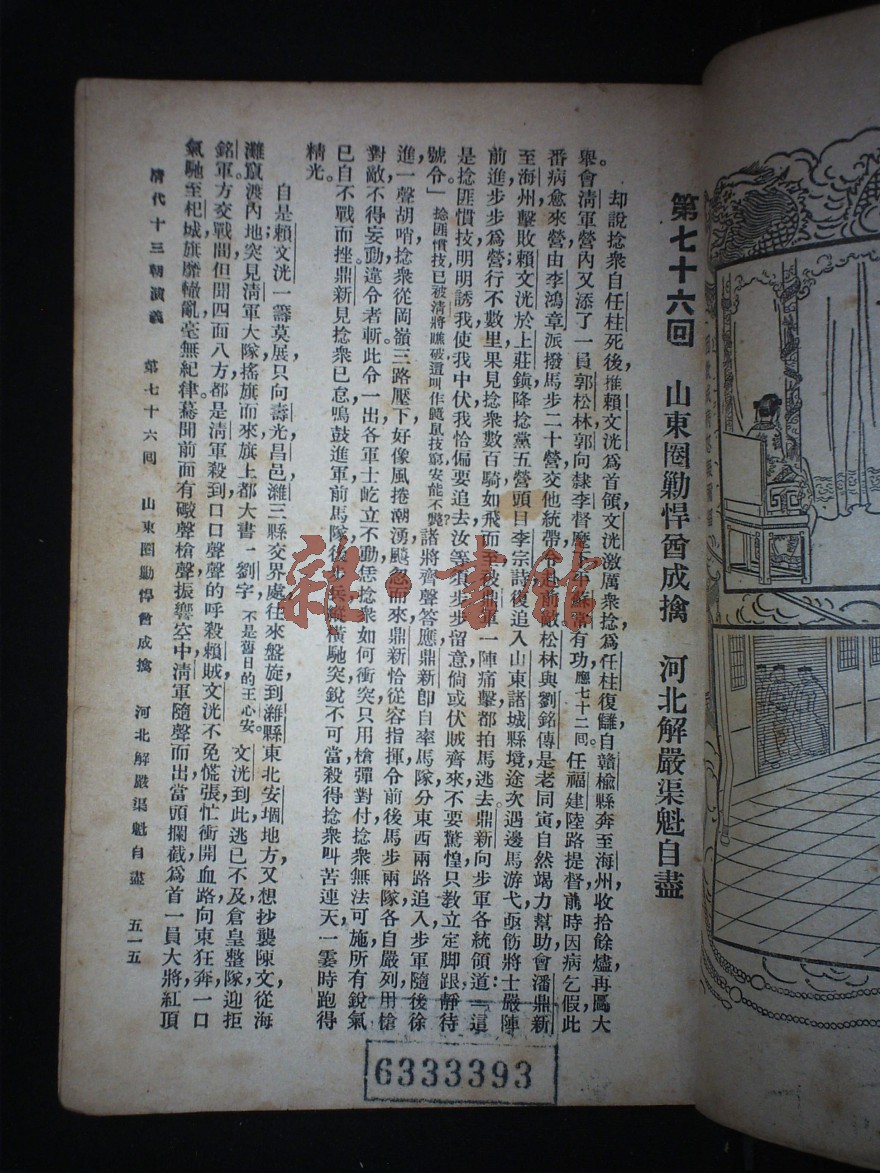 第七十六回　山東圈勦悍酋成擒　河北解嚴渠魁自盡
却說捻衆自任柱死後，推賴文洸爲首領，文洸激厲衆捻，爲任柱復讎，自贛榆縣奔至海州，收拾餘燼，再圖大
舉。會淸軍營內又添了一員郭松林，郭向隸李督麾下，蘇常有功，應七十二回。任福建陸路提督，前時因病乞假，此
番病愈來營，由李鴻章派撥馬步二十營，交他統帶，令赴前敵。松林與劉銘傳是老同寅，自然竭力幫助，會潘鼎新
至海州，擊敗賴文洸於上莊鎮，降捻黨五營頭目李宗詩，後追入山東諸城縣境，途次遇邊馬游弋，亟飭將士嚴陣
前進，步步爲營，行不數里，果見捻衆數百騎，如飛而至，被軍一陣痛擊，都拍馬逃去。鼎新向步軍各統領道：「這
是捻匪慣技，明明誘我，使我中伏，我恰偏要追去，汝等須步步留意，倘或伏賊齊來，不要驚惶，只教立定脚跟，靜待
號令。」捻匪慣技已被淸將瞧破，還叫作技窮，安能不斃？諸將齊聲答應，鼎新卽自率馬隊，分東西兩路追入，步軍隨後徐
進，一聲胡哨，捻衆從岡嶺三路壓下，好像風捲潮湧，飈忽而來，鼎新恰從容指揮，令前後馬步兩隊，各自嚴列，用槍
對敵，不得妄動，違令者斬。此令一出，各軍士屹立不動，恁捻衆如何衝突，只用槍彈對付，捻衆無法可施，所有銳氣，
已自不戰而挫，鼎新見捻衆已怠，鳴鼓進軍，前馬隊，後步兵，縱橫馳突，銳不可當，殺得捻衆叫苦連天，一霎時跑得
精光。
自是賴文洸一籌莫展，只向壽光昌邑濰三縣交界處，往來盤旋，到濰縣東北安堌地方，又想抄襲陳文，從海
灘竄渡內地，突見淸軍大隊搖旗而來，旗上都大書一劉字，不是舊日的王心安。文洸到此，逃已不及，倉皇整隊，迎拒
銘軍，方交戰間，但聞四面八方都是淸軍殺到，口口聲聲的呼殺賴賊，文洸不免慌張，忙衝開血路，向東狂奔，一口
氣馳至杞城，旗靡轍亂，毫無紀律。驀聞前面有礮聲槍聲，振響空中，淸軍隨聲而出，當頭攔截，爲首一員大將，紅頂
淸代十三朝演義　第七十六回　山東圈勦悍酋成擒　河北解嚴渠魁自盡　五一五
6333393
雜·書館